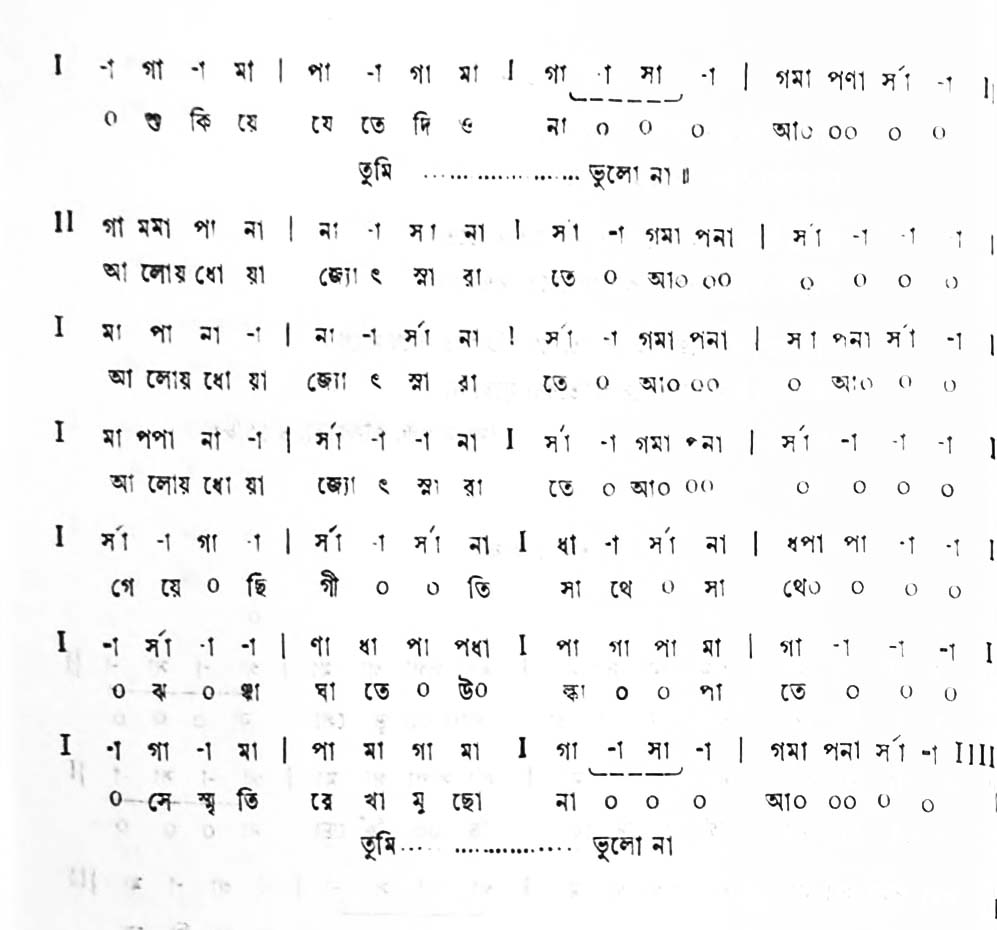 I -া গা -া মা | পা -া গা মা I গা -া সা -া | গমা পণা র্সা -া I
০ শু কি য়ে যে তে দি ও না ০ ০ ০ আ০ ০০ ০ ০
তুমি ........................ ভুলো না॥
II গা মমা পা না | না -া সা না I র্সা -া গমা পনা | র্সা -া -া া |
আ লোয় ধো য়া জ্যো ৎ স্না রা তে ০ আ০ ০০ ০ ০ ০ ০
I মা পা না -া | না -া র্সা না ! র্সা -া গমা পনা | সা পনা র্সা -া |
আ লোয় ধো য়া জ্যো ৎ স্না রা তে ০ আ০ ০০ ০ আ০ ০ ০
I মা পপা না -া | র্সা -া -া না I র্সা -া গমা পনা | র্সা -া -া -া I
আ লোয় ধো য়া জ্যো ৎ স্না রা তে ০ আ০ ০০ ০ ০ ০ ০
I র্সা -া গা -া | র্সা -া র্সা না I ধা -া র্সা না | ধপা পা -া -া |
গে য়ে ০ ছি গী ০ ০ তি সা থে ০ সা থে০ ০ ০ ০
I -া র্সা -া -া | ণা ধা পা পধা I পা গা পা মা | গা -া -া -া I
০ ঝ ০ ঞ্ঝা ঘা তে ০ উ০ ল্কা ০ ০ পা তে ০ ০ ০
I -া গা -া মা | পা মা গা মা I গা -া সা -া | গমা পনা র্সা -া IIII
০ সে স্মৃ তি রে খা মু ছো না ০ ০ ০ আ০ ০০ ০ ০
তুমি..... ................ ভুলো না